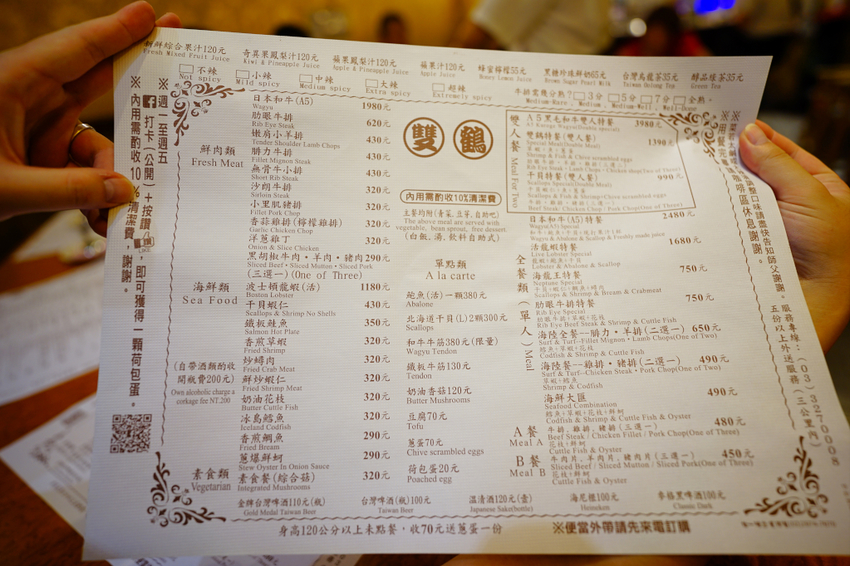 新鮮綜合果汁120元
Fresh Mixed Fruit Juice
奇異果鳳梨汁120元
Kiwi & Pineapple Juice
蘋果鳳梨汁120元
Apple & Pineapple Juice
蘋果汁120元
Apple Juice
蜂蜜檸檬55元
Honey Lemon Juice
黑糖珍珠鮮奶65元
Brown Sugar Pearl Milk
台灣烏龍茶35元
Taiwan Oolong Tea
醇品綠茶35元
Green Tea
不辣
Not spicy
小辣
Mild spicy
中辣
Medium spicy
大辣
Extra spicy
超辣
Extremely spicy
牛排需幾分熟?
3分
5分
7分
全熟
※週一至週五
打卡(公開)+按讚
即可獲得一顆荷包蛋。
※內用需酌收10%清潔費,謝謝。
鮮肉類
Fresh Meat
日本和牛(A5) 1980元
Wagyu
肋眼牛排 620元
Rib Eye Steak
嫩肩小羊排 430元
Tender Shoulder Lamb Chops
腓力牛排 430元
Fillet Mignon Steak
無骨牛小排 430元
Short Rib Steak
沙朗牛排 320元
Sirloin Steak
小里肌豬排 320元
Fillet Pork Chop
香蒜雞排(檸檬雞排) 320元
Garlic Chicken Chop
洋蔥雞丁 320元
Onion & Slice Chicken
黑胡椒牛肉·羊肉·豬肉 290元
Sliced Beef·Sliced Mutton·Sliced Pork
(三選一)(One of Three)
海鮮類
Sea Food
波士頓龍蝦(活) 1180元
Boston Lobster
干貝蝦仁 430元
Scallops & Shrimp No Shells
鐵板鮭魚 350元
Salmon Hot Plate
香煎草蝦 320元
Fried Shrimp
炒蟳肉 320元
Fried Crab Meat
鮮炒蝦仁 320元
Fried Shrimp Meat
奶油花枝 320元
Butter Cuttle Fish
冰島鱈魚 320元
Iceland Codfish
香煎鯛魚 290元
Fried Bream
蔥爆鮮蚵 290元
Stew Oyster In Onion Sauce
(自帶酒類酌收
開瓶費200元)
Own alcoholic charge a
corkage fee NT.200
素食類
Vegetarian
素食套(綜合菇) 320元
Integrated Mushrooms
雙鶴
內用需酌收10%清潔費
主餐均附(青菜,豆芽,自助吧)
The above meal are served with
vegetable, bean sprout, free dessert
(白飯,湯,飲料自助式)
單點類
A la carte
鮑魚(活)一顆380元
Abalone
北海道干貝(L)2顆300元
Scallops
和牛牛筋380元(限量)
Wagyu Tendon
鐵板牛筋130元
Tendon
奶油香菇120元
Butter Mushrooms
豆腐70元
Tofu
蔥蛋70元
Chive scrambled eggs
荷包蛋20元
Poached egg
雙人餐
Meal For Two
A5黑毛和牛雙人特餐 3980元
雙鶴特餐(雙人餐) 1390元
Special Meal(Double Meal)
干貝特餐(雙人餐) 990元
Scallops Special(Double Meal)
全餐類(單人)
Meal
日本和牛(A5)特餐 2480元
Wagyu(A5) Special
活龍蝦特餐 1680元
Live Lobster Special
Lobster & Abalone & Scallop
海龍王特餐 750元
Neptune Special
Scallops & Shrimp & Bream & Crabmeat
肋眼牛排特餐 750元
Rib Eye Special
Rib Eye Beef Steak & Shrimp & Cuttle Fish
海陸全餐--腓力·羊排(二選一) 650元
Codfish & Shrimp & Cuttle Fish
海陸餐--雞排·豬排(二選一) 490元
Shrimp & Codfish
海鮮大匯 490元
Seafood Combination
Codfish & Shrimp & Cuttle Fish & Oyster
A餐
Meal A
牛排,雞排,豬排(三選一) 480元
Beef Steak / Chicken Fillet / Pork Chop(One of Three)
Cuttle Fish & Oyster
B餐
Meal B
牛肉片,羊肉片,豬肉片(三選一) 450元
Sliced Beef / Sliced Mutton / Sliced Pork(One of Three)
Cuttle Fish & Oyster
金牌台灣啤酒110元(瓶)
Gold Medal Taiwan Beer
台灣啤酒(瓶)100元
Taiwan Beer
溫清酒120元(壺)
Japanese Sake(bottle)
海尼根100元
Heineken
麥格黑啤酒100元
Classic Dark
身高120公分以上未點餐,收70元送蔥蛋一份
※便當外帶請先來電訂購